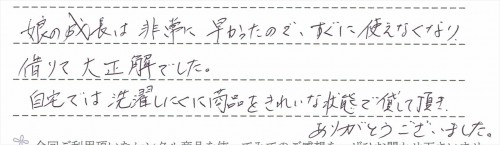 娘の成長は非常に早かったので、すぐに使えなくなり
借りて大正解でした。
自宅では洗濯しにくい商品をきれいな状態で貸して頂き
ありがとうございました。